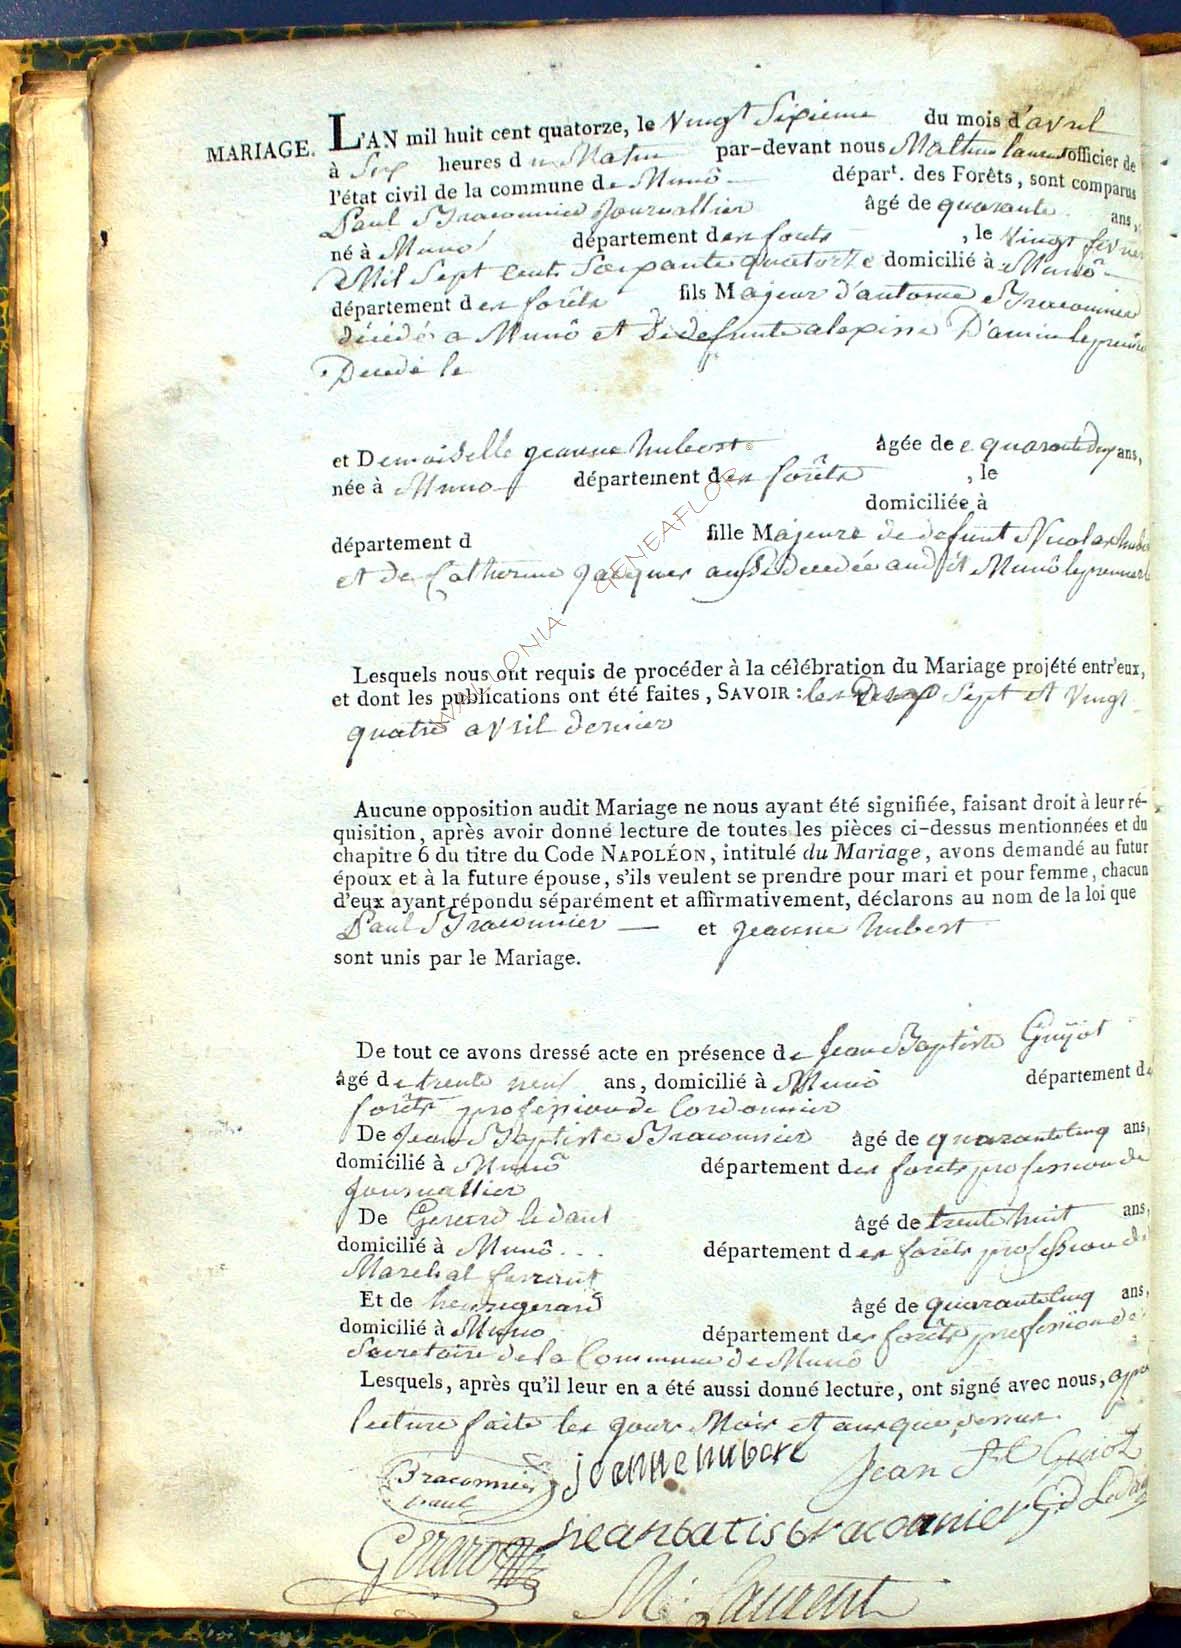 MARIAGE. L'AN mil huit cent quatorze, le Vingt Sixieme du mois d'avril
à Six heures du Matin par-devant nous Mathieu laurent officier de
l'état civil de la commune de Munô départ. des Forêts, sont comparus
Paul Braconnier Journallier âgé de quarante ans,
né à Muno département des forets, le vingt fevrier
Mil Sept Cent Soixante quatorze domicilié à Munô
département des forêts fils Majeur d'antoine Braconnier
décédé a Munô et de defunte
Decede le
et Demoiselle jeanne hubert âgée de quarante deux ans,
née à Muno département des forêts, le
domiciliée à
département d fille Majeure de defunt Nicolas hubert
et de Catherine Jacques aussi decedée audit Munô
WALLONIA GENEAFLOR ©
Lesquels nous ont requis de procéder à la célébration du Mariage projété entr'eux,
et dont les publications ont été faites, SAVOIR : les Dix Sept et Vingt
quatre avril dernier
Aucune opposition audit Mariage ne nous ayant été signifiée, faisant droit à leur ré-
quisition, après avoir donné lecture de toutes les pièces ci-dessus mentionnées et du
chapitre 6 du titre du Code NAPOLÉON, intitulé du Mariage, avons demandé au futur
époux et à la future épouse, s'ils veulent se prendre pour mari et pour femme, chacun
d'eux ayant répondu séparément et affirmativement, déclarons au nom de la loi que
Paul Braconnier — et jeanne hubert
sont unis par le Mariage.
De tout ce avons dressé acte en présence de Jean Baptiste Guyot
âgé de trente neuf ans, domicilié à Munô département des
forêts profession de Cordonnier
De Jean Baptiste Braconnier âgé de quarante cinq ans,
domicilié à Munô département des forets profession de
Journallier
De Gerard ledant âgé de trente huit ans,
domicilié à Munô département des forêts profession de
Marechal ferrant
Et de henry gerard âgé de quarante cinq ans,
domicilié à Muno département des forêts profession de
Secretaire de la Commune de Munô
Lesquels, après qu'il leur en a été aussi donné lecture, ont signé avec nous, apres
lecture faite les jour Mois et an que dessus.
Braconnier paul
jeanne hubert
Jean Bt Guiot
Gd Ledant
jean batis braconnier
Gerard
M. Laurent